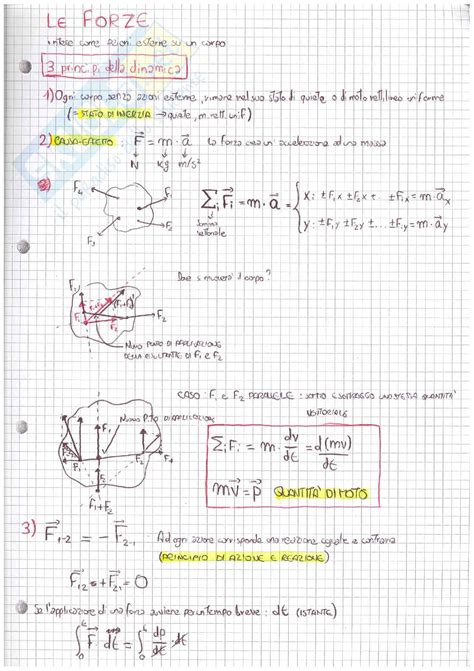 LE FORZE
intese come azioni esterne su un corpo
3 principi della dinamica
1) Ogni corpo, senza azioni esterne, rimane nel suo stato di quiete o di moto rettilineo uniforme
(= STATO DI INERZIA → quiete, m. rett. unif.)
2) CAUSA-EFFETTO: F⃗ = m · a⃗ la forza crea un' accelerazione ad una massa
N Kg m/s²
F₄ F₁ F₂ F₃
Σᵢ F⃗ᵢ = m · a⃗ = { x: ±F₁ₓ ±F₂ₓ + ±Fᵢₓ = m · aₓ
y: ±F₁y ±F₂y ± ... ±Fᵢy = m · ay
somma vettoriale
Dove si muoverà il corpo?
F₁ F₁+F₂ (F₁+F₂)' F₂ F₁ F₂
NUOVO PUNTO DI APPLICAZIONE
DELLA RISULTANTE DI F₁ e F₂
CASO: F₁ e F₂ PARALLELE: sommo e sottraggo una stessa quantità
vettoriale
NUOVO P.TO DI APPLICAZIONE
F₁ F₂
F₁+F₂
Σᵢ Fᵢ = m · dv/dt = d(mv)/dt
mv⃗ = p⃗ QUANTITÀ DI MOTO
3) F⃗₁₋₂ = − F⃗₂₋₁ Ad ogni azione corrisponde una reazione uguale e contraria
(PRINCIPIO DI AZIONE E REAZIONE)
F⃗₁₂ + F⃗₂₁ = 0
Se l'applicazione di una forza avviene per un tempo breve: dt (ISTANTE)
∫₀ᵗ F⃗ dt = ∫₀ᵗ dp/dt · dt